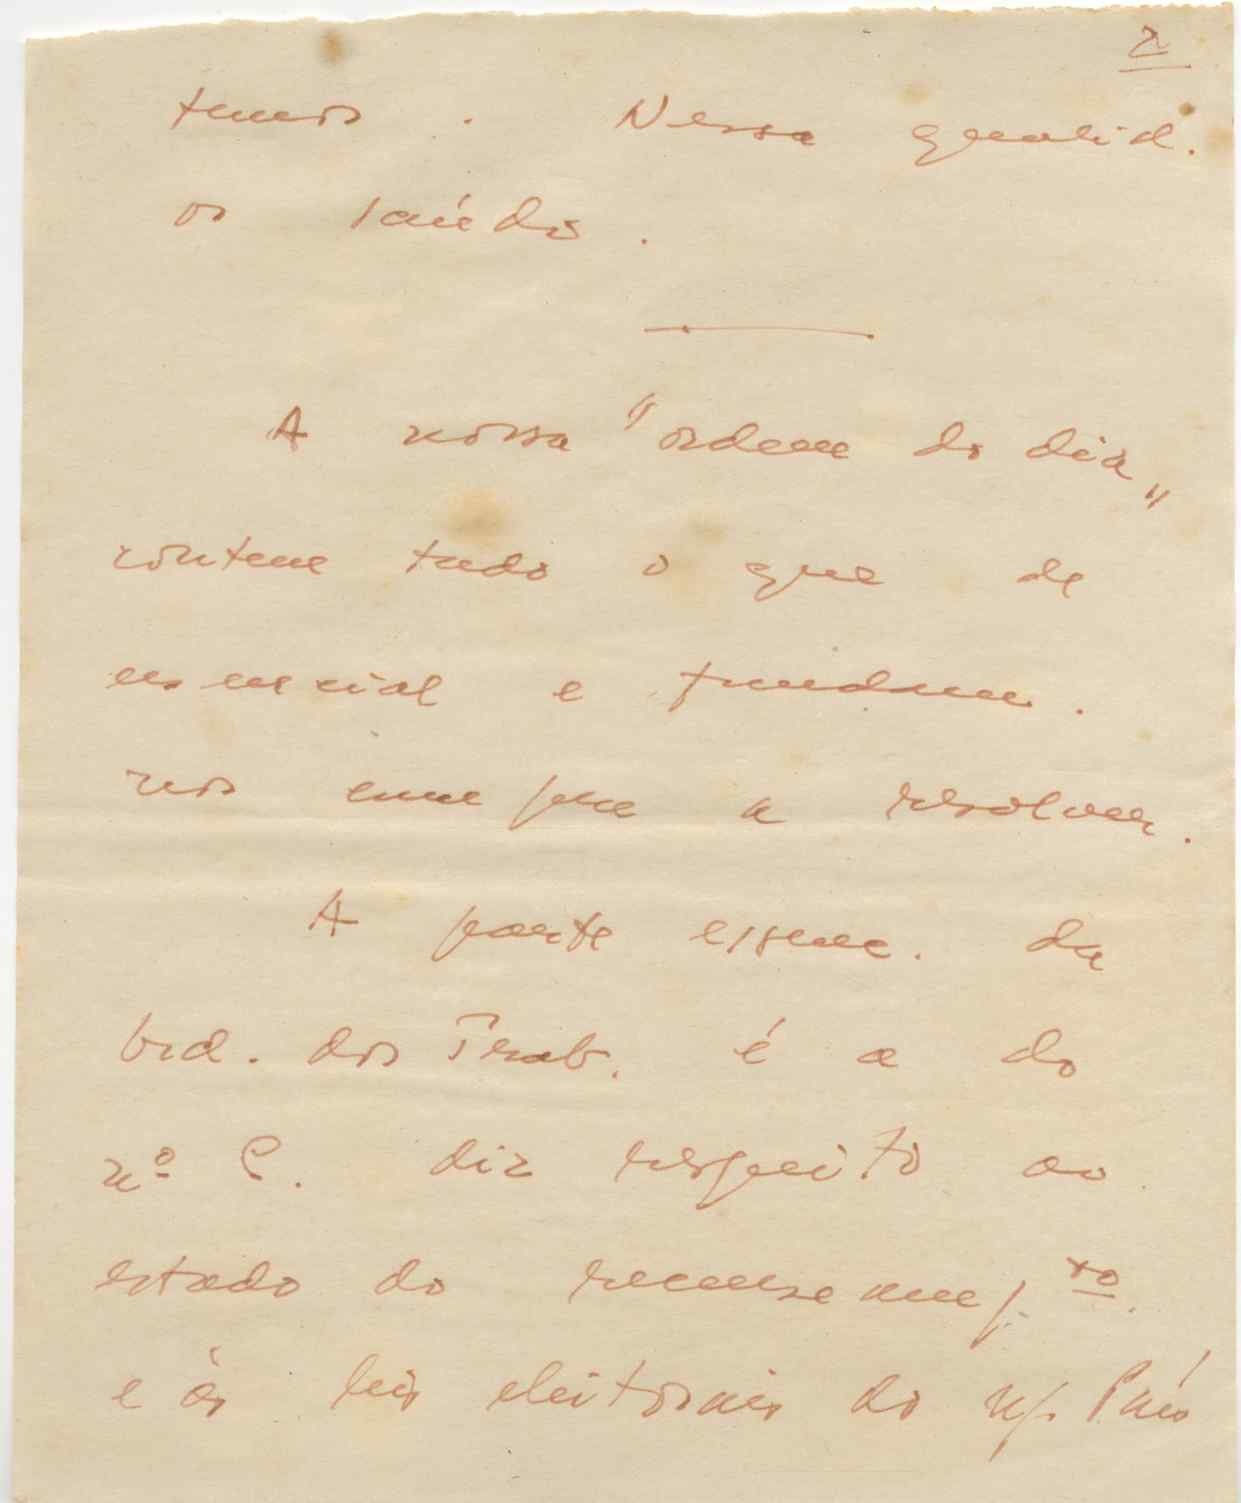 2
temos. Nessa qualid.
os saúdo.
A nossa "ordem do dia"
contem tudo o que de
essencial e fundam.
nos cumpre a resolver.
A parte essenc. da
Ord. dos Trab. é a do
nº C. diz respeito ao
estado do recenseam/.to.
e às leis eleitorais do n/. País